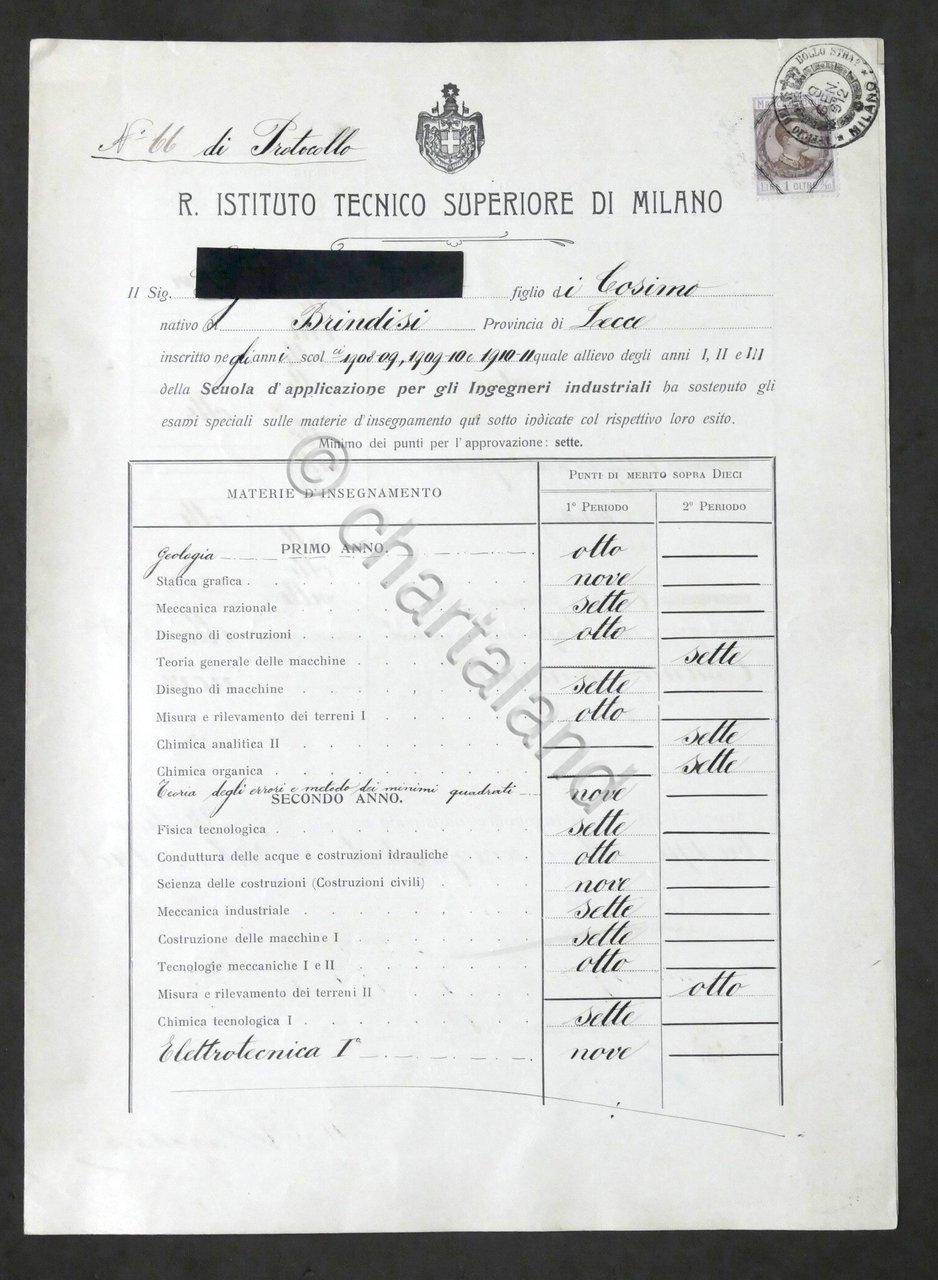 BOLLO STRA
GEN.
912
MILANO
LIRE 1 OLTRE
N.° 66 di Protocollo
R. ISTITUTO TECNICO SUPERIORE DI MILANO
Il Sig. figlio di Cosimo
nativo di Brindisi Provincia di Lecce
inscritto negli anni scol.ci 1908-09, 1909-10 e 1910-11 quale allievo degli anni I, II e III
della Scuola d'applicazione per gli Ingegneri industriali ha sostenuto gli
esami speciali sulle materie d'insegnamento qui sotto indicate col rispettivo loro esito.
Minimo dei punti per l'approvazione: sette.
MATERIE D'INSEGNAMENTO PUNTI DI MERITO SOPRA DIECI
1° PERIODO 2° PERIODO
PRIMO ANNO.
Geologia otto
Statica grafica nove
Meccanica razionale sette
Disegno di costruzioni otto
Teoria generale delle macchine sette
Disegno di macchine sette
Misura e rilevamento dei terreni I otto
Chimica analitica II sette
Chimica organica sette
Teoria degli errori e metodo dei minimi quadrati nove
SECONDO ANNO.
Fisica tecnologica sette
Conduttura delle acque e costruzioni idrauliche otto
Scienza delle costruzioni (Costruzioni civili) nove
Meccanica industriale sette
Costruzione delle macchine I sette
Tecnologie meccaniche I e II otto
Misura e rilevamento dei terreni II otto
Chimica tecnologica I sette
Elettrotecnica Iª nove
© chartaland